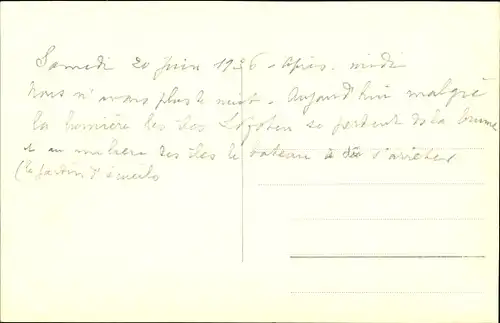 Samedi 20 Juin 1936 - Après-midi
Nous n'avons plus de nuit - Aujourd'hui malgré
la lumière les îles Lofoten se perdent ds la brume
et au milieu des îles le bateau a dû s'arrêter
(le jardin d'émeils